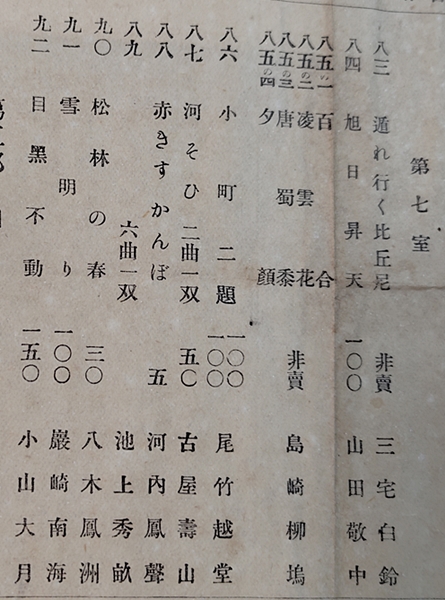 第七室
八三 遁れ行く比丘尼 非賣 三宅白鈴
八四 旭日昇天 一〇〇 山田敬中
八五の一 百合
八五の二 凌雲花
八五の三 唐蜀黍
八五の四 夕顔
非賣 島崎柳塢
八六 小町二題 一〇〇 一〇〇 尾竹越堂
八七 河そひ 二曲一双 五〇 古屋壽山
八八 赤きすかんぽ 五 河內鳳聲
八九 六曲一双 池上秀畝
九〇 松林の春 三〇 八木鳳洲
九一 雪明り 一〇〇 巖崎南海
九二 目黑不動 一五〇 小山大月